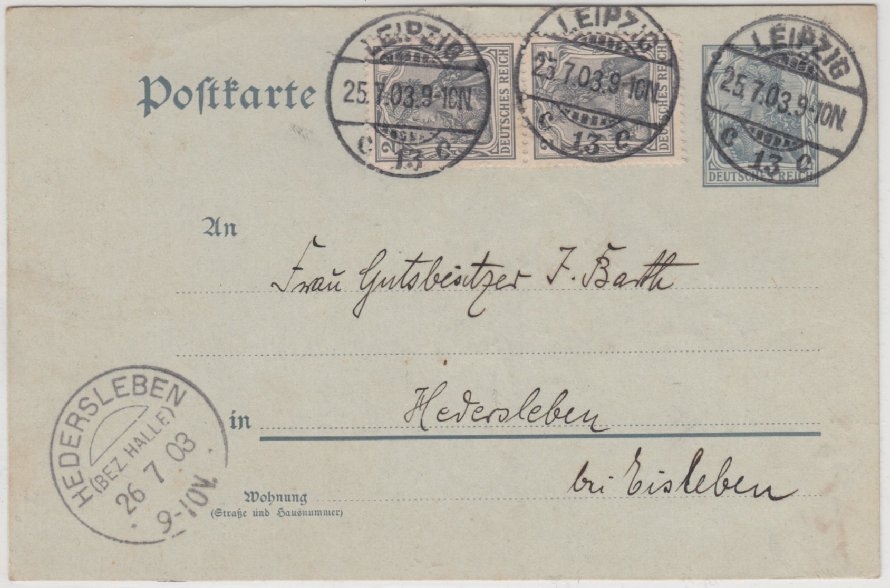 Postkarte
LEIPZIG
25.7.03.9-10N.
C 13 C
2
DEUTSCHES REICH
LEIPZIG
25.7.03.9-10N.
C 13 C
2
DEUTSCHES REICH
LEIPZIG
25.7.03.9-10N.
C 13 C
2
DEUTSCHES REICH
An
Frau Gutsbesitzer F. Barth
in
Hedersleben
bei Eisleben
HEDERSLEBEN
(BEZ. HALLE)
26 7 03
9-10V.
Wohnung
(Straße und Hausnummer)